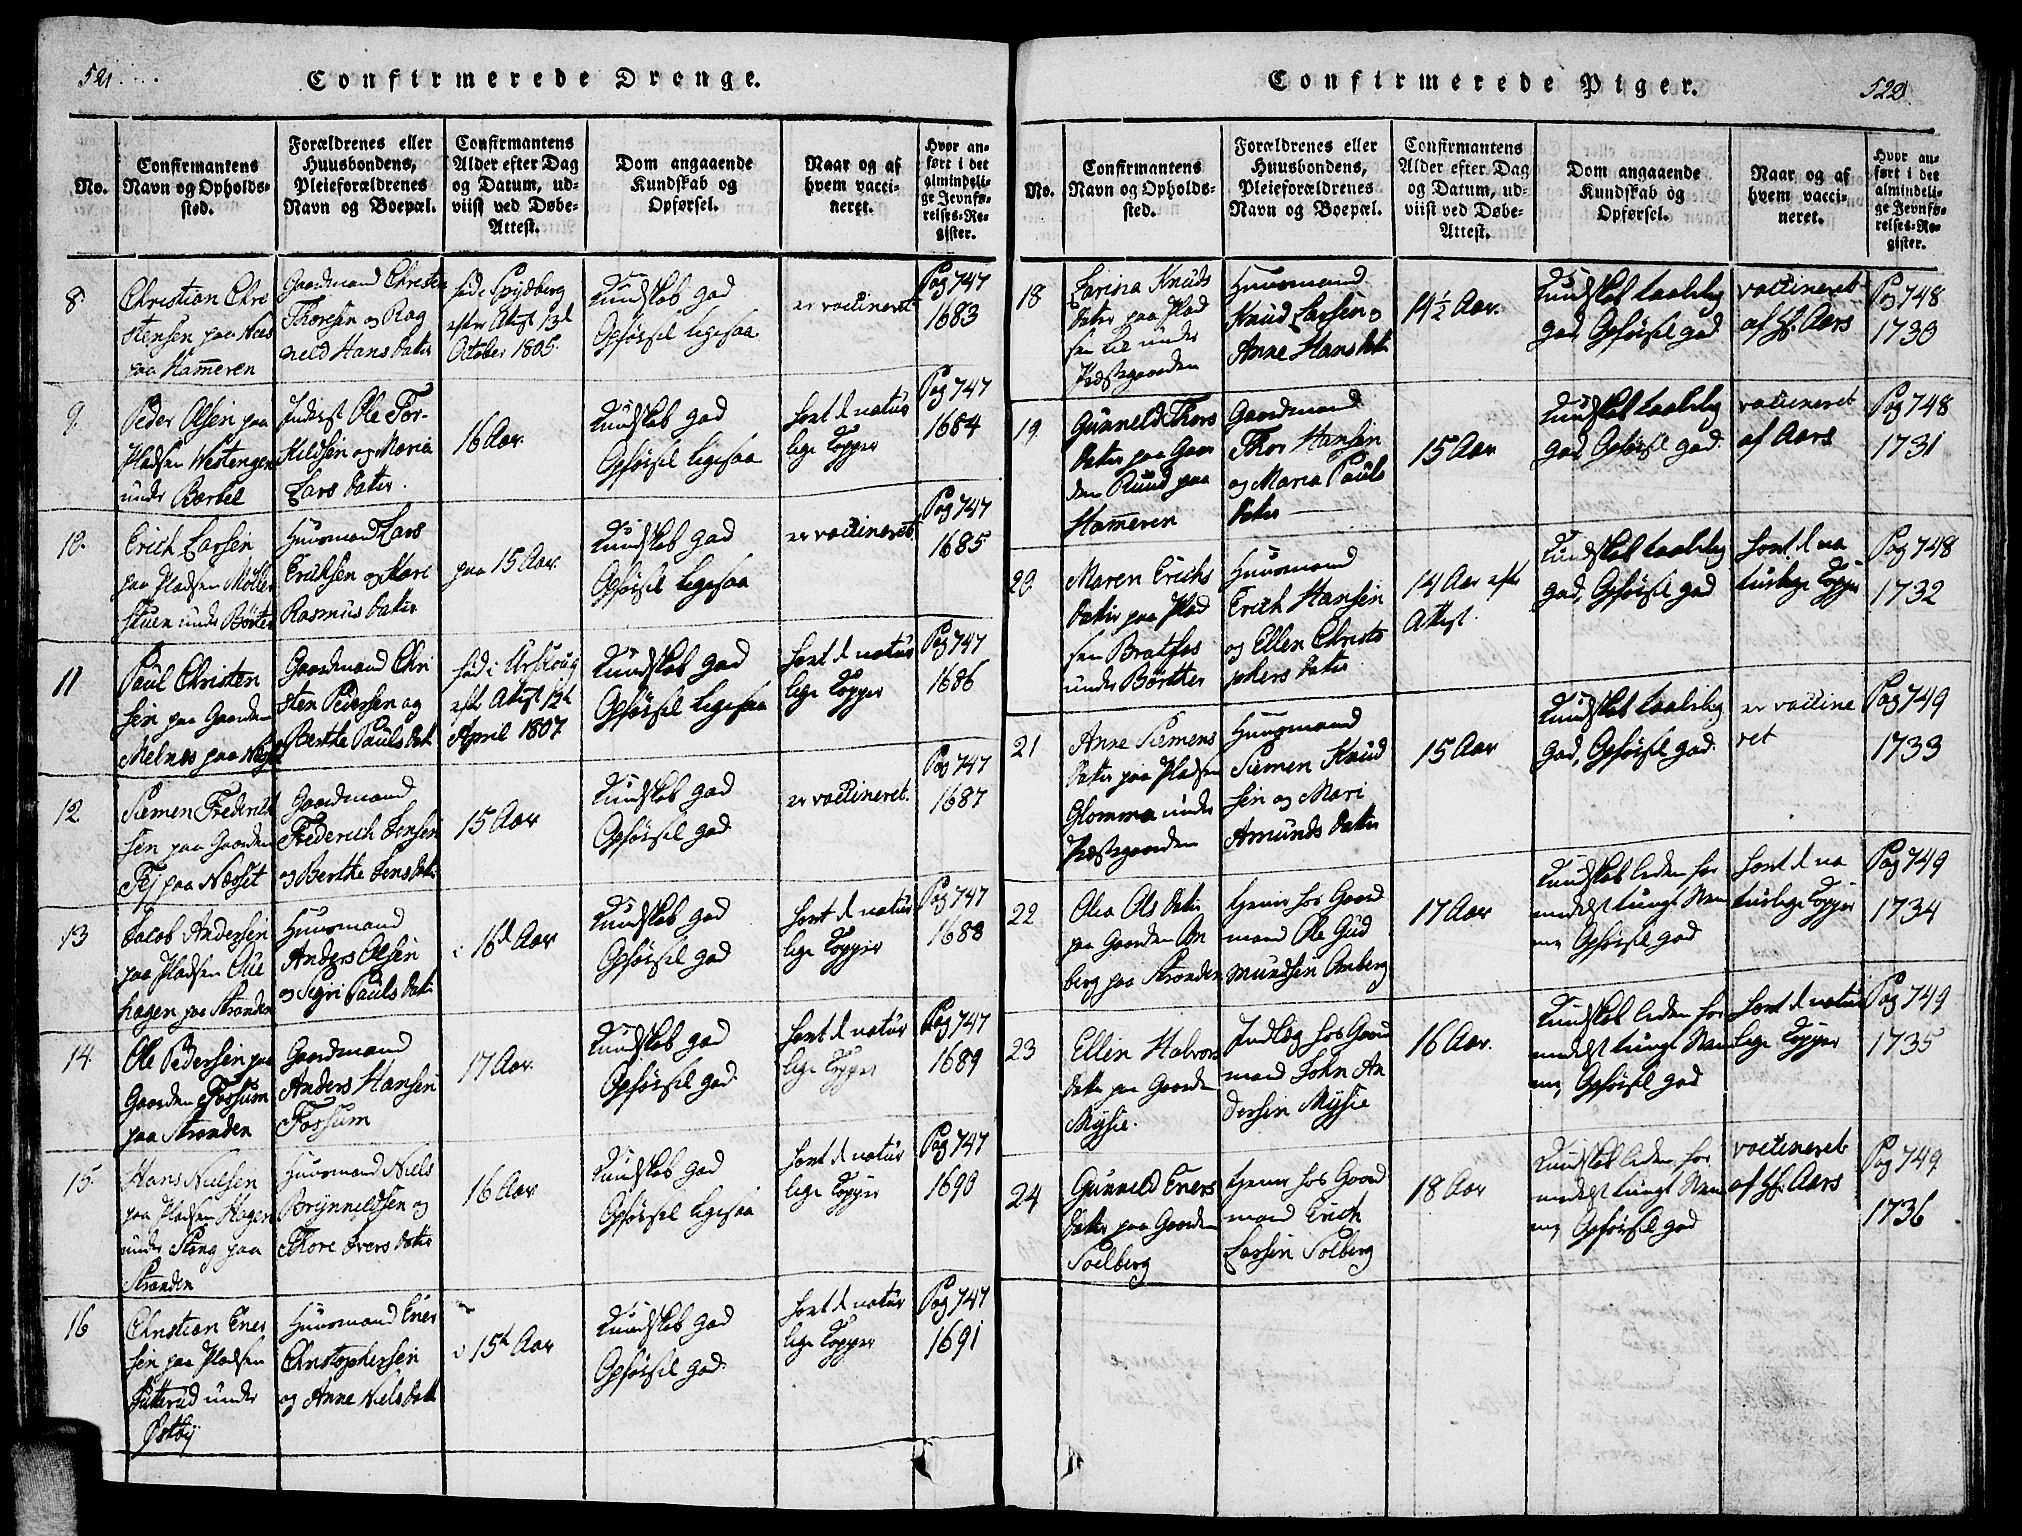 521
Confirmerede Drenge.
No.
Confirmantens
Navn og Opholds-
sted.
Forældrenes eller
Huusbondens,
Pleieforældrenes
Navn og Boepæl.
Confirmantens
Alder efter Dag
og Datum, ud-
viist ved Døbe-
Attest.
Dom angaaende
Kundskab og
Opførsel.
Naar og af
hvem vacci-
neret.
Hvor an-
ført i det
almindeli-
ge Jevnfø-
relses-Re-
gister.
8.
Christian Chri
stensen paa Næs
paa Hammeren
Gaardmand Christen
Thoresen og Rag
neld Hans datter
fød i Spydberg
efter Attest 13d
October 1805.
Kundskab god
Opførsel ligesaa
er vaccineret
Pag 747
1683
9.
Peder Olsen paa
Pladsen Westengen
under
Inderst Ole Tor-
kildsen og Maria
Lars datter.
16 Aar.
Kundskab god
Opførsel ligesaa
havt d natur
lige Kopper
Pag 747
1684
10.
Erich Larsen
paa Pladsen Møller
stuen under Børter
Huusmand Lars
Erichsen og Kari
Rasmus datter
paa 15 Aar.
Kundskab god
Opførsel ligesaa
er vaccineret
Pag 747
1685
11
Paul Christen
sen paa Gaarden
Melnes paa
Gaardmand Chri
sten Pedersen og
Berthe Pauls dat
fød i Urskoug
eft Attest 12t
April 1807
Kundskab god
Opførsel ligesaa
havt d natur
lige Kopper
Pag 747
1686
12
Siemen Frederich
sen paa Gaarden
Tej paa Næsset
Gaardmand
Frederich Jensen
og Berthe Jens datter
15 Aar
Kundskab god
Opførsel god
er vaccineret.
Pag 747
1687
13
Jacob Andersen
paa Pladsen
hagen paa Stranden
Huusmand
Anders Olsen
og Sigri Pauls datter
i 16d Aar
Kundskab god
Opførsel god
havt d natur
lige Kopper
Pag 747
1688
14.
Ole Pedersen paa
Gaarden Fossum
paa Stranden
Gaardmand
Anders Hansen
Fossum
17 Aar.
Kundskab god
Opførsel god.
havt d natur
lige Kopper
Pag 747
1689
15.
Hans Nielsen
paa Pladsen Hagen
under Steng paa
Stranden
Huusmand Niels
Brynnildsen og
Thore Ivers datter
16 Aar
Kundskab god
Opførsel ligesaa
havt d natur
lige Kopper
Pag 747
1690
16
Christian Ener
sen paa Pladsen
under
Østby
Huusmand Ener
Christophersen
og Anne Niels datt
i 15de Aar
Kundskab god
Opførsel god.
havt d natur
lige Kopper
Pag 747
1691
522.
Confirmerede Piger.
No.
Confirmantens
Navn og Opholds-
sted.
Forældrenes eller
Huusbondens,
Pleieforældrenes
Navn og Boepæl.
Confirmantens
Alder efter Dag
og Datum, ud-
viist ved Døbe-
Attest.
Dom angaaende
Kundskab og
Opførsel.
Naar og af
hvem vacci-
neret.
Hvor an-
ført i det
almindeli-
ge Jevnfø-
relses-Re-
gister.
18
Larina Knuds
datter paa Plad
sen Lie under
Præstegaarden
Huusmand
Knud Larsen og
Anne Hans dat
14½ Aar.
Kundskab taalelig
god, Opførsel god
vaccineret
af H. Aars
Pag 748
1730
19.
Gunneld Thors
datter paa Gaar
den Ruud paa
Hammeren
Gaardmand
Thor Hansen
og Maria Pauls
datter
15 Aar
Kundskab taalelig
god, Opførsel god.
vaccineret
af Aars
Pag 748
1731
20.
Maren Erichs
datter paa Plad
sen Bratfos
under Børther
Huusmand
Erich Hansen
og Ellen Christo
phers datter
14 Aar eft
Attest.
Kundskab taalelig
god, Opførsel god
havt d na
turlige Kopper
Pag 748
1732
21
Anne Siemens
datter paa Pladsen
Glomma under
Præstegaarden
Huusmand
Siemen Knud
sen og Mari
Amunds datter
15 Aar
Kundskab taalelig
god, Opførsel god.
er vaccine
ret
Pag 749
1733
22
Olea Ols datter
paa Gaarden Om
berg paa Stranden
tjener hos Gaard
mand Ole Gud
mundsen Omberg
17 Aar
Kundskab liden for
medelst tungt Nem
me, Opførsel god
havt d na
turlige Kopper
Pag 749
1734
23
Ellen Halvors
datter paa Gaarden
Mysie.
Indlæg hos Gaard
mand John An
dersen Mysie
16 Aar.
Kundskab liden for
medelst tungt Nem
me, Opførsel god
havt d natur
lige Kopper
Pag 749
1735
24
Gunneld Eners
datter paa Gaarden
Soelberg
tjener hos Gaard
mand Erich
Larsen Solberg
18 Aar
Kundskab liden for
medelst tungt Nem
me, Opførsel god
vaccineret
af H. Aars
Pag 749
1736